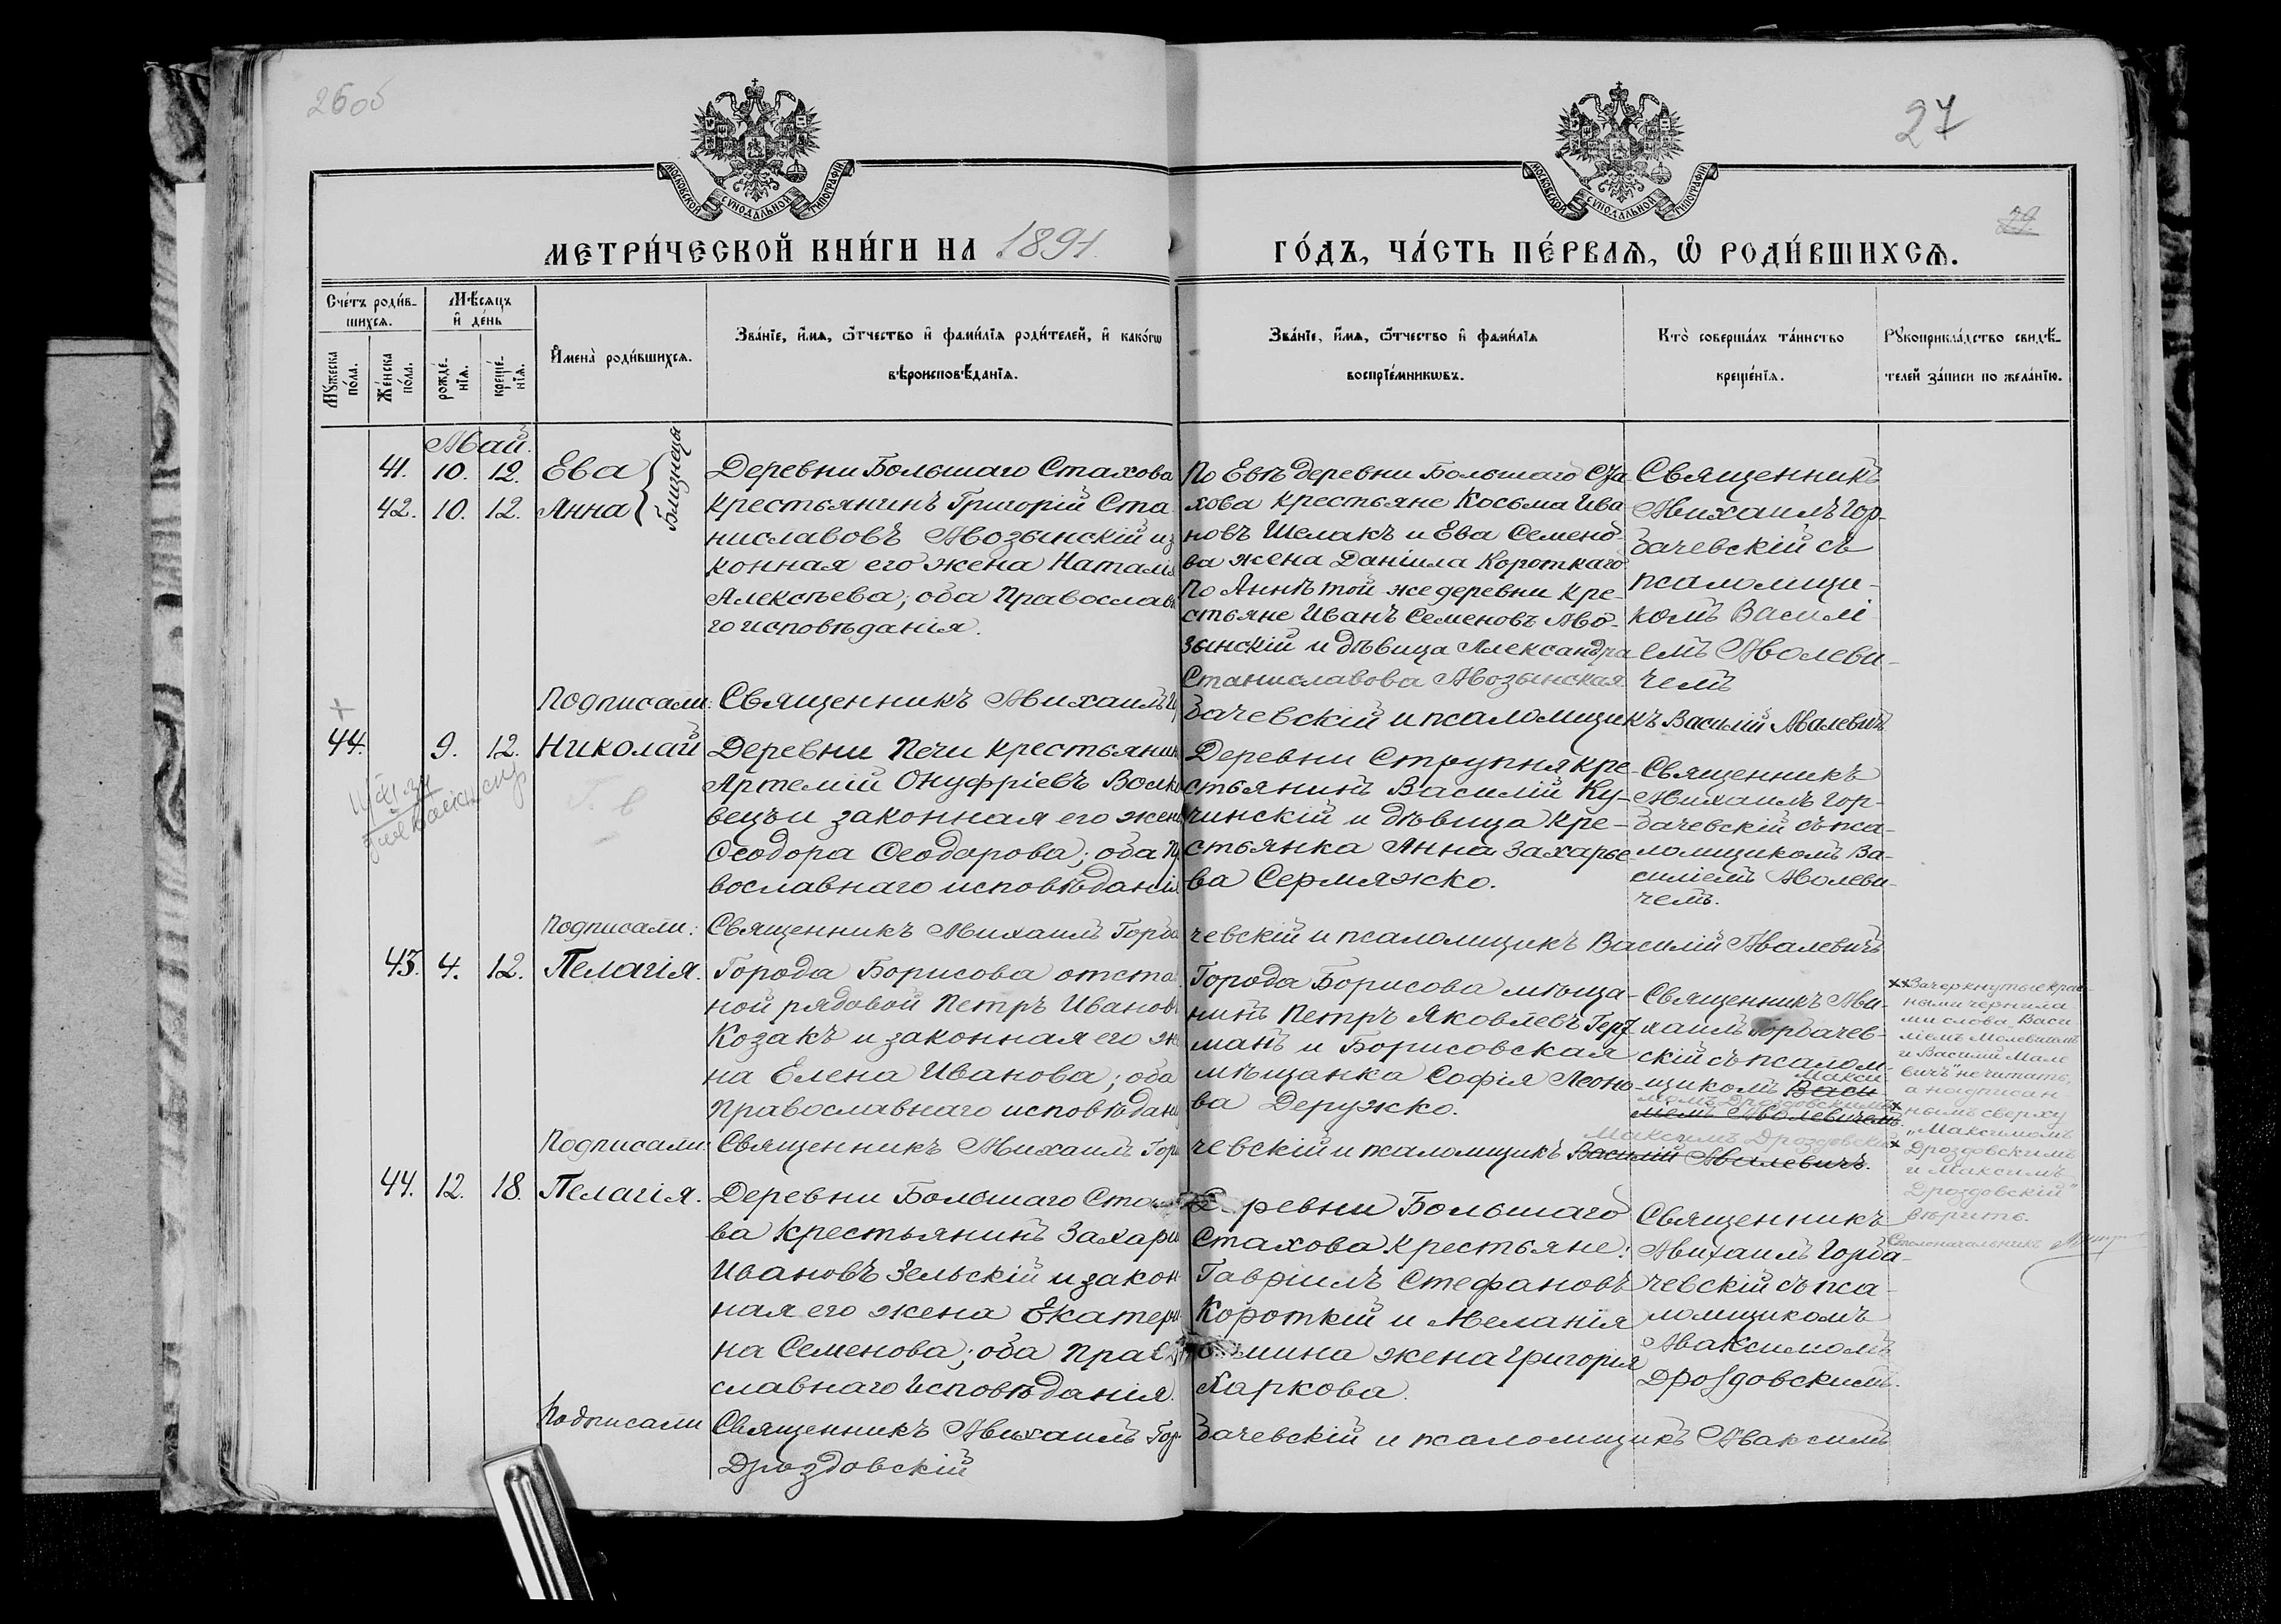 26об
27
29
МОСКОВСКОЙ СѴНОДАЛЬНОЙ ТИПОГРАФІИ
МОСКОВСКОЙ СѴНОДАЛЬНОЙ ТИПОГРАФІИ
МЕТРИ́ЧЕСКОЙ КНИ́ГИ НА 1891
ГО́ДЪ, ЧА́СТЬ ПЕ́РВАѦ, Ѡ РОДИ́ВШИХСѦ.
Сче́тъ роди́в-
шихсѧ.
Мꙋжеска
по́ла.
Же́нска
по́ла.
Мѣ́сяцъ
и҆ де́нь
рожде́-
нїѧ.
креще́-
нїѧ.
И҆мена̀ роди́вшихсѧ.
Зва́нїе, и҆́мѧ, ѻ҆́тчество и҆ фами́лїѧ роди́телей, и҆ како́гѡ
вѣроисповѣ́данїѧ.
Зва́нїе, и҆́мѧ, ѻ҆́тчество и҆ фами́лїѧ
воспрїе́мникѡвъ.
Кто̀ соверша́лъ та́инство
креще́нїѧ.
Рꙋкоприкла́дство свидѣ́-
телей за́писи по жела́нїю.
Май.
41. 10. 12. Ева
42. 10. 12. Анна
близнецы
Деревни Большаго Стахова
крестьянинъ Григорій Ста-
ниславовъ Мозынскій и за
конная его жена Наталія
Алексѣева; оба Православна
го исповѣданія.
По Евѣ деревни Большаго Ста
хова крестьяне Косьма Ива
новъ Шелакъ и Ева Семено-
ва жена Даніила Короткаго
По Аннѣ той-же деревни кре-
стьяне Иванъ Семеновъ Мо-
зынскій и дѣвица Александра
Станиславова Мозынская.
Священникъ
Михаилъ Гор-
бачевскій съ
псаломщи-
комъ Василі
емъ Молеви-
чемъ
Подписали: Священникъ Михаилъ Гор
бачевскій и псаломщикъ Василій Малевичъ
44. 9. 12. Николай
Деревни Печи крестьянин
Артемій Онуфріевъ Волко
вецъ и законная его жена
Ѳеодора Ѳеодорова; оба Пр
вославнаго исповѣданія
Деревни Струпня кре-
стьянинъ Василій Ку-
чинскій и дѣвица кре-
стьянка Анна Захарье
ва Сермяжко.
Священникъ
Михаилъ Гор-
бачевскій съ пса-
ломщикомъ Ва-
силіемъ Молеви-
чемъ.
Подписали: Священникъ Михаилъ Горба
чевскій и псаломщикъ Василій Малевичъ
43. 4. 12. Пелагія.
Города Борисова отста
ной рядовой Петръ Иванов
Козакъ и законная его же
на Елена Иванова; оба
Православнаго исповѣдан
Города Борисова мѣща-
нинъ Петръ Яковлевъ Герц
манъ и Борисовская
мѣщанка Софія Леоно
ва Деружко.
Священникъ Ми-
хаилъ Горбачев-
скій съ псалом-
Макси
щикомъ Васи
момъ Дроздовскимъ
ліемъ Молевичемъ.
××Зачеркнутые крас-
ными чернила
ми слова Васи
ліемъ Молевичемъ
и Василій Мале
вичъ" не читать,
а надписан
нымъ сверху
„Максимомъ
Дроздовскимъ
и Максимъ
Дроздовскій"
вѣрить.
Столоначальникъ
Подписали: Священникъ Михаилъ Горба
Максимъ Дроздовскій
чевскій и псаломщикъ Василій Малевичъ.
44. 12. 18. Пелагія.
Деревни Большаго Ста
ва крестьянинъ Захарі
Ивановъ Зельскій и закон
ная его жена Екатери
на Семенова; оба Пра
славнаго исповѣданія.
ревни Большаго
Стахова крестьяне:
Гавріилъ Стефановъ
Короткій и Меланія
мина жена Григорія
Харкова.
Священникъ
Михаилъ Горба-
чевскій съ пса-
ломщикомъ
Максимомъ
Дроздовскимъ.
Подписали Священникъ Михаилъ Гор-
бачевскій и псаломщикъ Максимъ
Дроздовскій